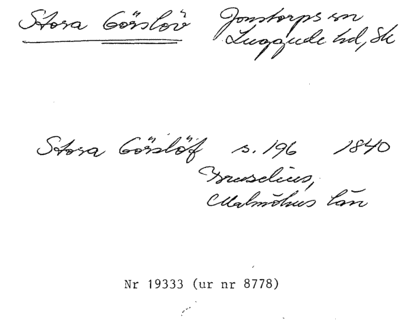 Stora Görslöv Jonstorps sn
Luggude hd, Sk
Stora Görslöf s. 196 1840
Bruselius,
Malmöhus län
Nr 19333 (ur nr 8778)